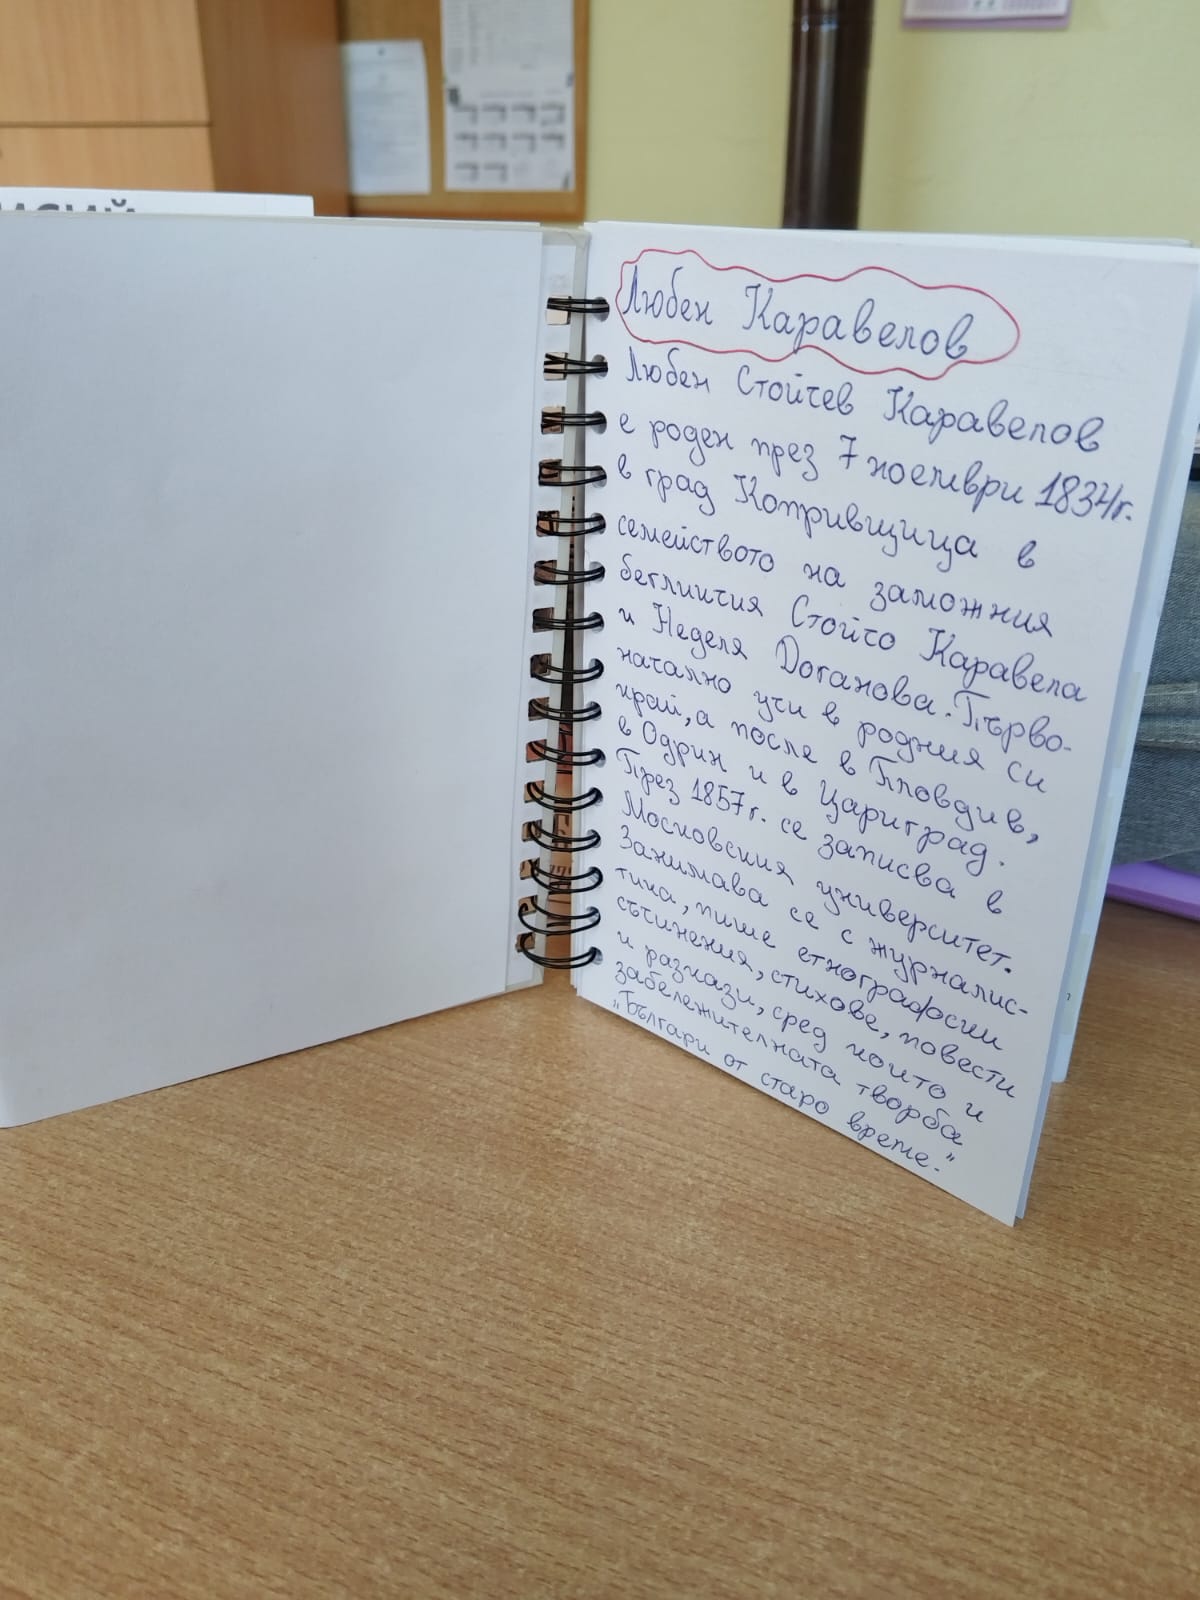 Любен Каравелов
Любен Стойчев Каравелов
е роден през 7 ноември 1834г.
в град Копривщица в
семейството на заможния
бегликчия Стойчо Каравела
и Неделя Доганова. Първо-
начално учи в родния си
край, а после в Пловдив,
в Одрин и в Цариград.
През 1857г. се записва в
Московския университет.
Занимава се с журналис-
тика, пише етнографски
съчинения, стихове, повести
и разкази, сред които и
забележителната творба
„Българи от старо време."